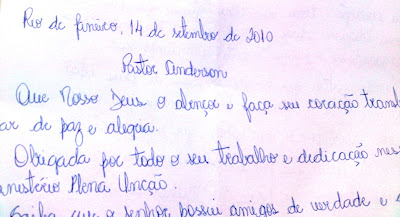 Rio de Janeiro, 14 de setembro de 2010
Pastor Anderson
Que Nosso Deus o abençoe e faça seu coração transb
ar de paz e alegria.
Obrigada por todo o seu trabalho e dedicação nes
inistério Plena Unção.
Saiba que o senhor possui amigos de verdade e